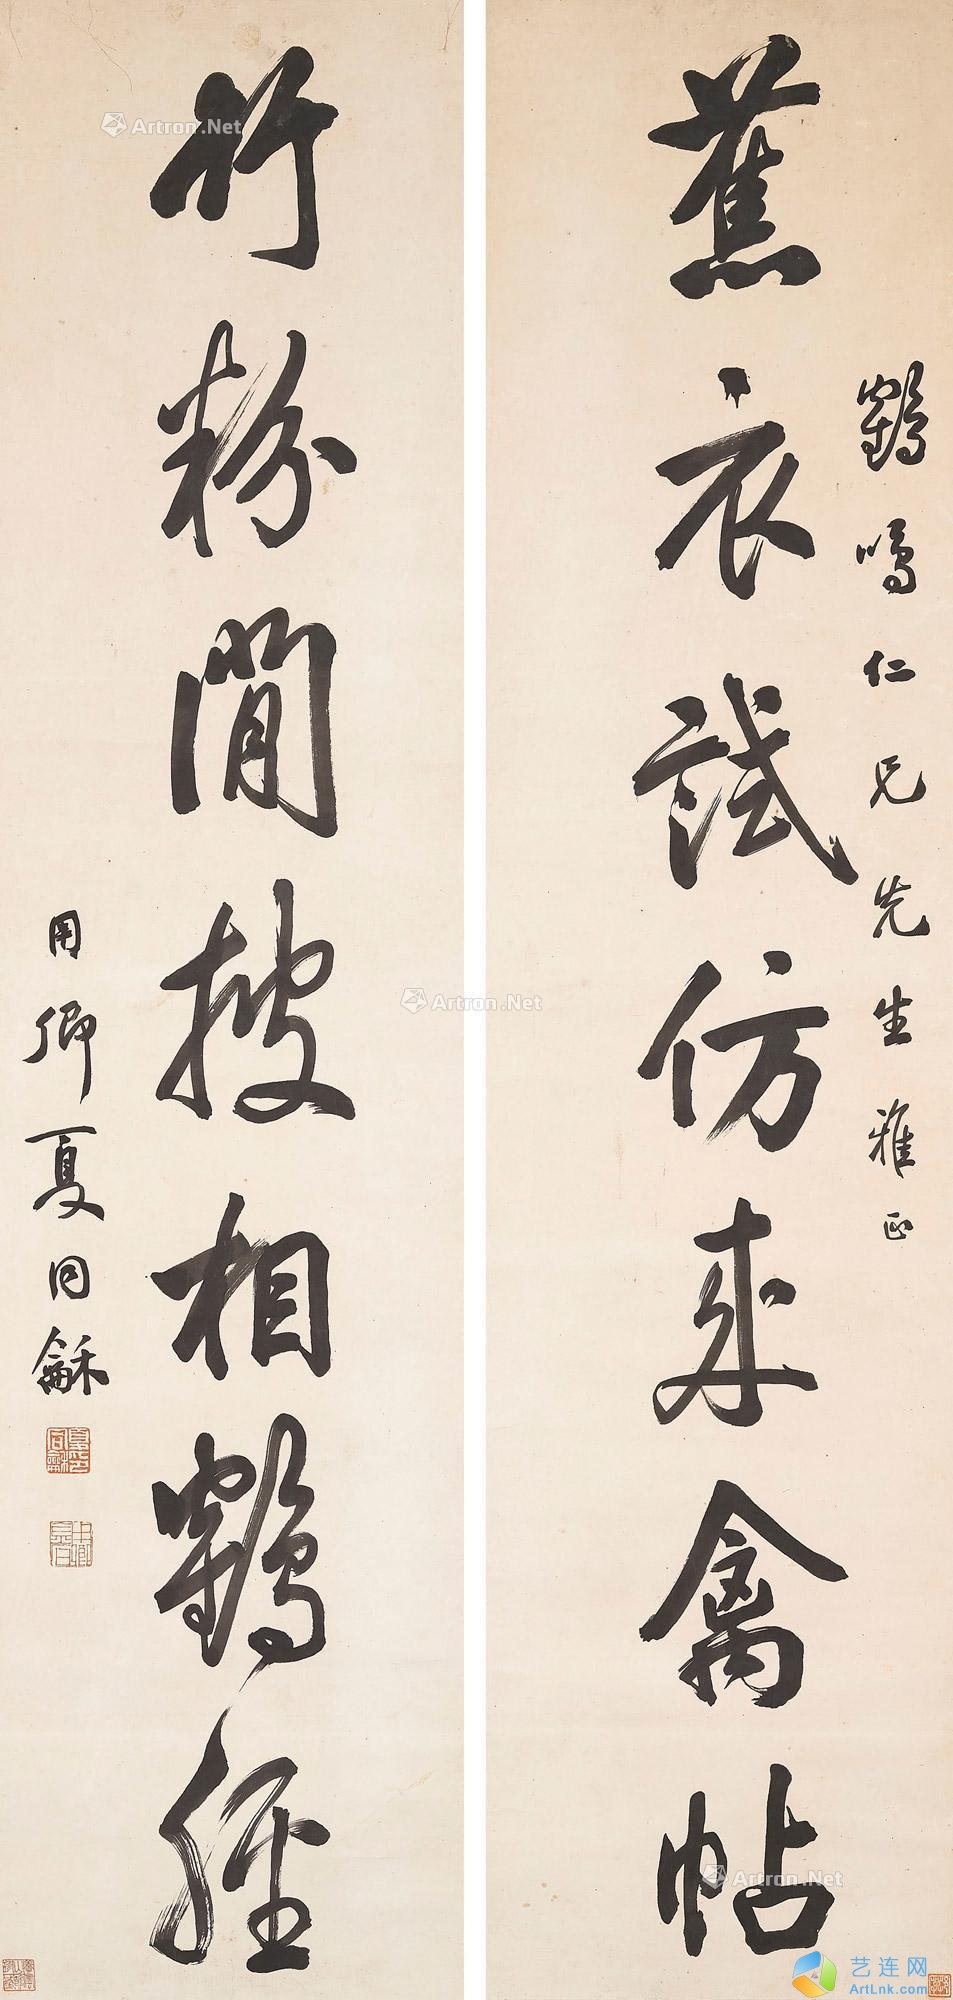 蕉衣試仿來禽帖
鶴鳴仁兄先生雅正
竹粉閒披相鶴經
用卿夏同龢
夏同龢印
Artron.Net
Artron.Net
Artron.Net
艺连网
ArtLink.com